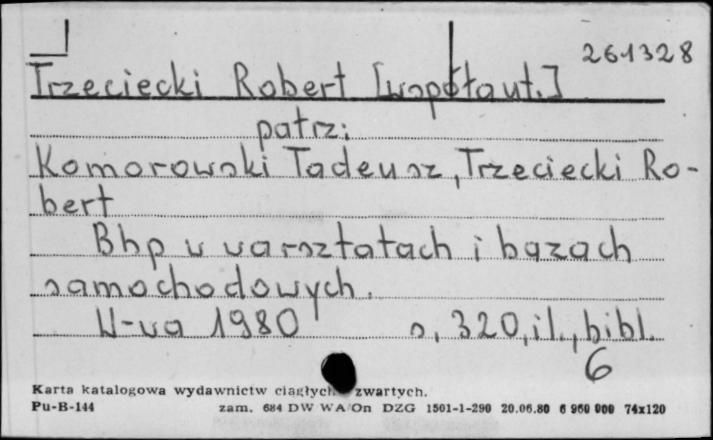 261328
Trzeciecki Robert [współaut.]
patrz:
Komorowski Tadeusz, Trzeciecki Ro-
bert
Bhp w warsztatach i bazach
samochodowych.
W-wa 1980 s. 320, il., bibl.
6
Karta katalogowa wydawnictw ciągłych zwartych.
Pu-B-144 zam. 684 DW WA/On DZG 1501-1-290 20.06.80 6 960 000 74x120